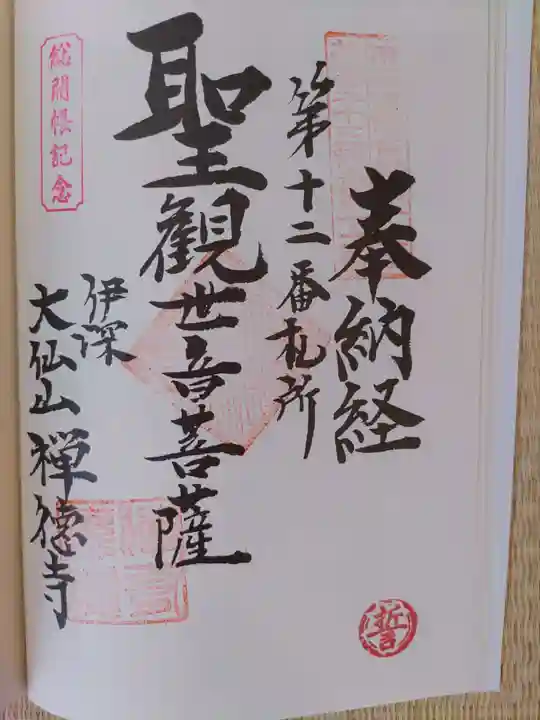 奉納経
第十二番札所
聖観世音菩薩
伊深
大仙山禅徳寺
総開帳記念
誓